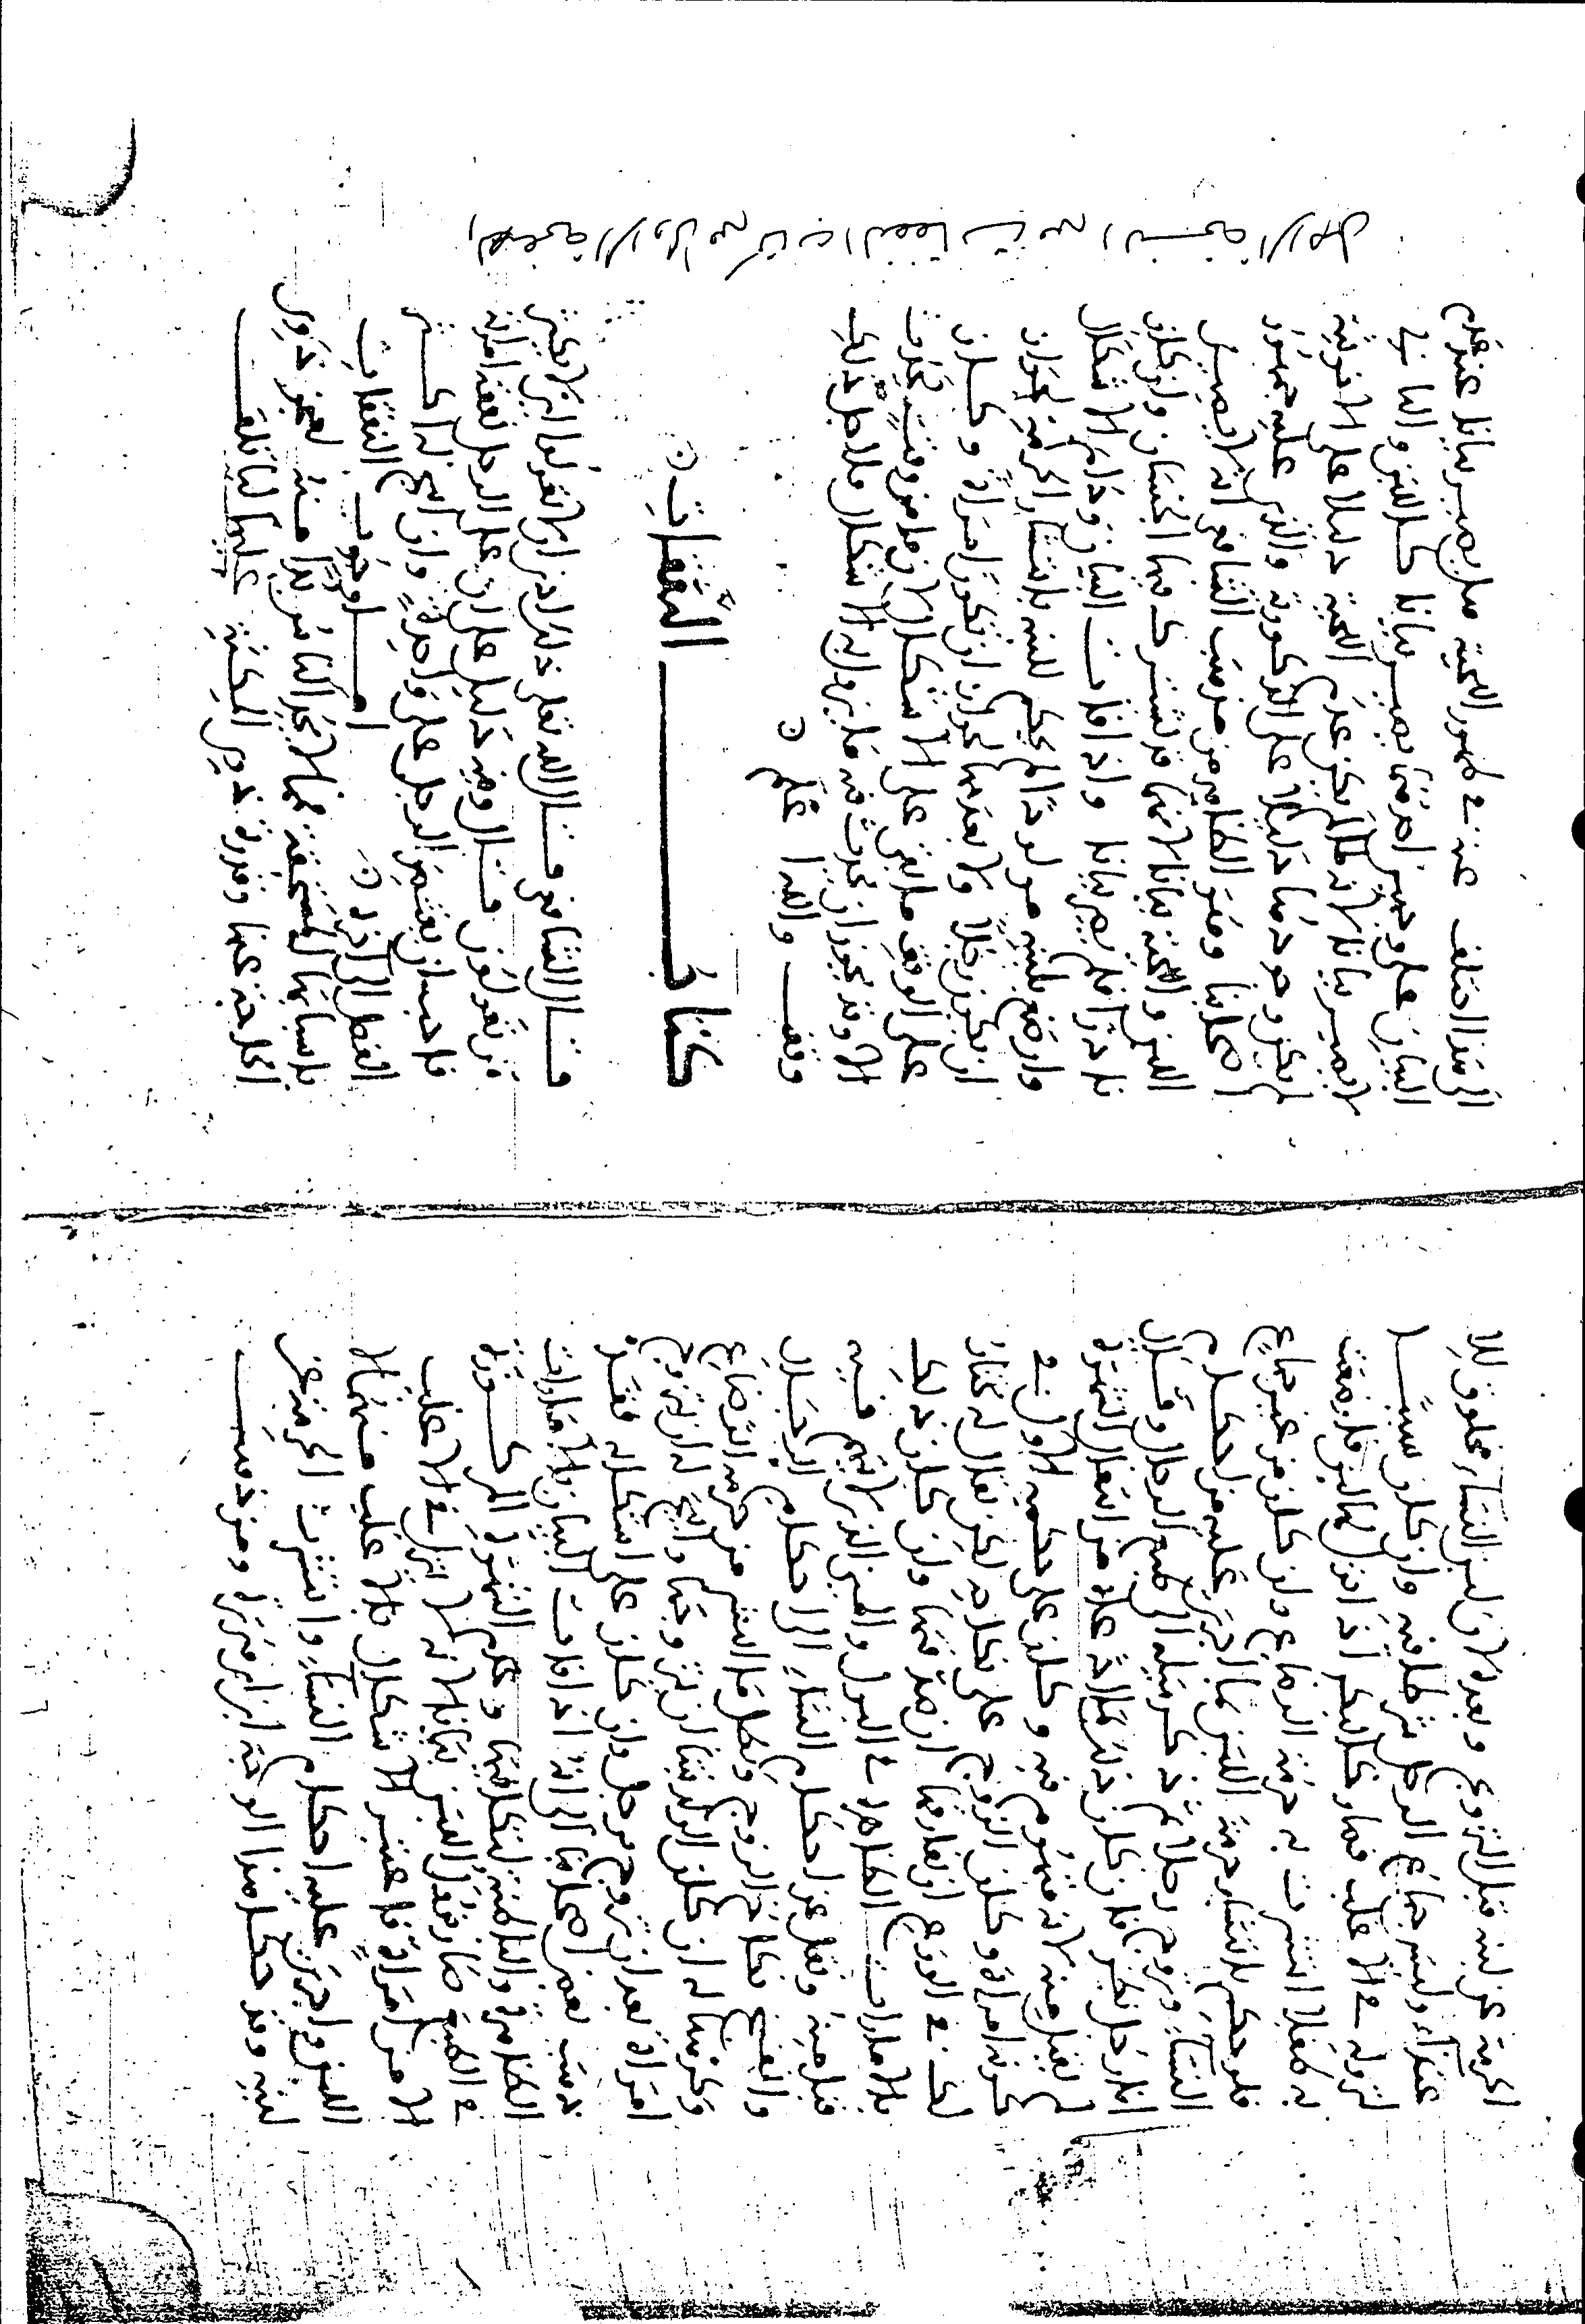 الحرمة عن لبنه قبل التزويج وبعده لان لبن النساء مخلوق للا
غذاء وليس جماع الرجل شرطا فيه وان كان سببا
لنزوله في الاغلب فصار كالبكر اذا نزل لها لبن فارضعت
به طفلا انتشرت به حرمة الرضاع وان كان من غير جماع
فلو حكم بانتشار حرمة اللبن لما اجري عليه من احكام
النساء وتزوج رجلا ثم ذكر ميله الى طبع الرجال وقال
انا رجل فان كان ذلك من انتقال الشهوة
لم يقبل منه لانه متهوم فيه وكان على حكمه الاول في
كونه امراة وكان الزوج على نكاحه لكن يقال له نختار
لك في الورع ان تفارقها ان صدقتها وان كان ذلك
بالامارات الظاهرة في البول والمني الذي لا يتهم فيه
قبل منه ونقل عن احكام النساء الى احكام الرجال
والفسخ نكاح الزوج وبطل ما انتشر من حرمة الرضاع
ان كان ان يتزوجها وابيح له ان يتزوج
امراة بعد ان تزوج برجل وان كان على اشكاله فقد
ذهب بعض اصحابنا الى انه اذا فات البيان بالامارات
الظاهرة والباطنة لتكافيها وعدم الشهوة المركوزة
في الطبع صار نزول اللبن بيانا لانه لا ينزل في الاغلب
الا من امراة فاعتبر الاشكال بالاغلب منهما لا
اللبن واجري عليه احكام النساء وانتشرت الحرمة عن
لبنه وقد حكي هذا الوجه ابن ابي هريرة ومن ذهب
الصفحة الاولى من كتاب النفقات من النسخة الاصل
الى هذا اختلف عنه في ظهور اللحية هل يصير بيانا عند عدم
البيان على وجهين احدهما يصير بيانا كاللبن والثاني
لا يصير بيانا لانه لما لم يكن عدم اللحية دليلا على الانوثية
لم يكن وجودها دليلا على الذكورية والذي عليه جمهور
اصحابنا وهو الظاهر من مذهب الشافعي انه لا يصير
اللبن واللحية بيانا لانهما قد يشترك فيهما الجنسان وان كان
نادرا فلم يصر بيانا واذا فات البيان ودام الاشكال
وارضع بلبنه مولودا لم يحكم للبنه بانتشار الحرمة لجواز
ان يكون رجلا ولا بعدمها لجواز ان تكون امراة وكان
على الوقف ما بقي على الاشكال
الا وقد يجوز ان يحدث فيه ما يزول به الاشكال فلاجل ذلك
وقف والله اعلم ه
كتاب النفقات ه
قال الشافعي قال الله تعالى ذلك ادنى الا تعولوا اي لا يكثر
من تعولون قال وفيه دليل على ان على الرجل نفقة امراته
فاحب ان يقتصر الرجل على واحدة وان ابيح له اكثر
الفصل الى اخره ه اما وجوب النفقات
باسبابها المستحقة فمما لا يجد الناس بدا منه لعجز ذوي
الحاجة عنها وقدرة ذوي المكنة عليها ليأتلف